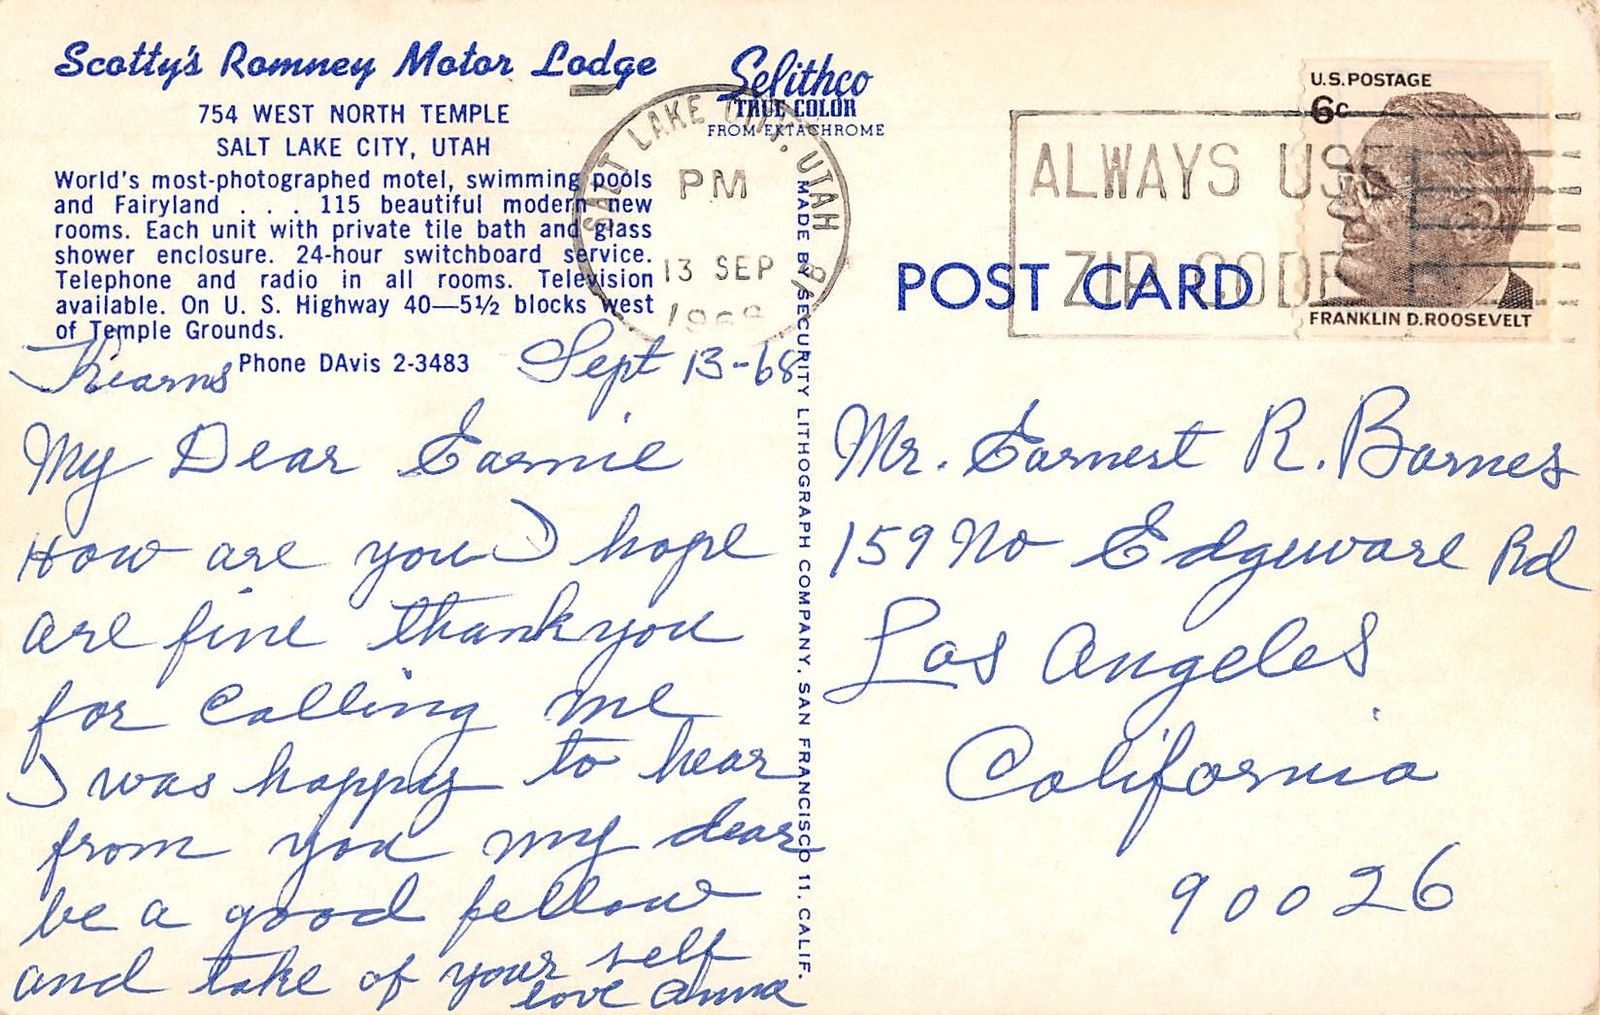 Scotty's Romney Motor Lodge
754 WEST NORTH TEMPLE
SALT LAKE CITY, UTAH
World's most-photographed motel, swimming pools
and Fairyland . . . 115 beautiful modern new
rooms. Each unit with private tile bath and glass
shower enclosure. 24-hour switchboard service.
Telephone and radio in all rooms. Television
available. On U. S. Highway 40—5½ blocks west
of Temple Grounds.
Phone DAvis 2-3483
Kearns
Sept 13-68
My Dear Earnie
How are you I hope
are fine thank you
for calling me
I was happy to hear
from you my dear
be a good fellow
and take of your self
love Anna
Selithco
TRUE COLOR
FROM EKTACHROME
MADE BY SECURITY LITHOGRAPH COMPANY, SAN FRANCISCO 11, CALIF.
SALT LAKE CITY, UTAH
PM
13 SEP
1968
ALWAYS USE
ZIP CODE
U.S. POSTAGE
6c
FRANKLIN D. ROOSEVELT
POST CARD
Mr. Earnest R. Barnes
159 No Edgeware Rd
Los Angeles
California
90026